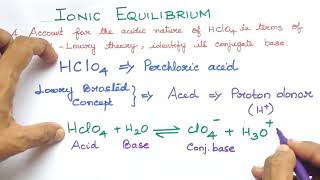 IONIC EQUILIBRIUM
Account for the acidic nature of HClO4 is terms of
- Lowry theory, identify its conjugate base
HClO4 ⇒ Perchloric acid
Lowry Bronsted Concept } ⇒ Acid ⇒ Proton donor
(H+)
HClO4 + H2O ⇌ ClO4− + H3O+
Acid Base Conj. base